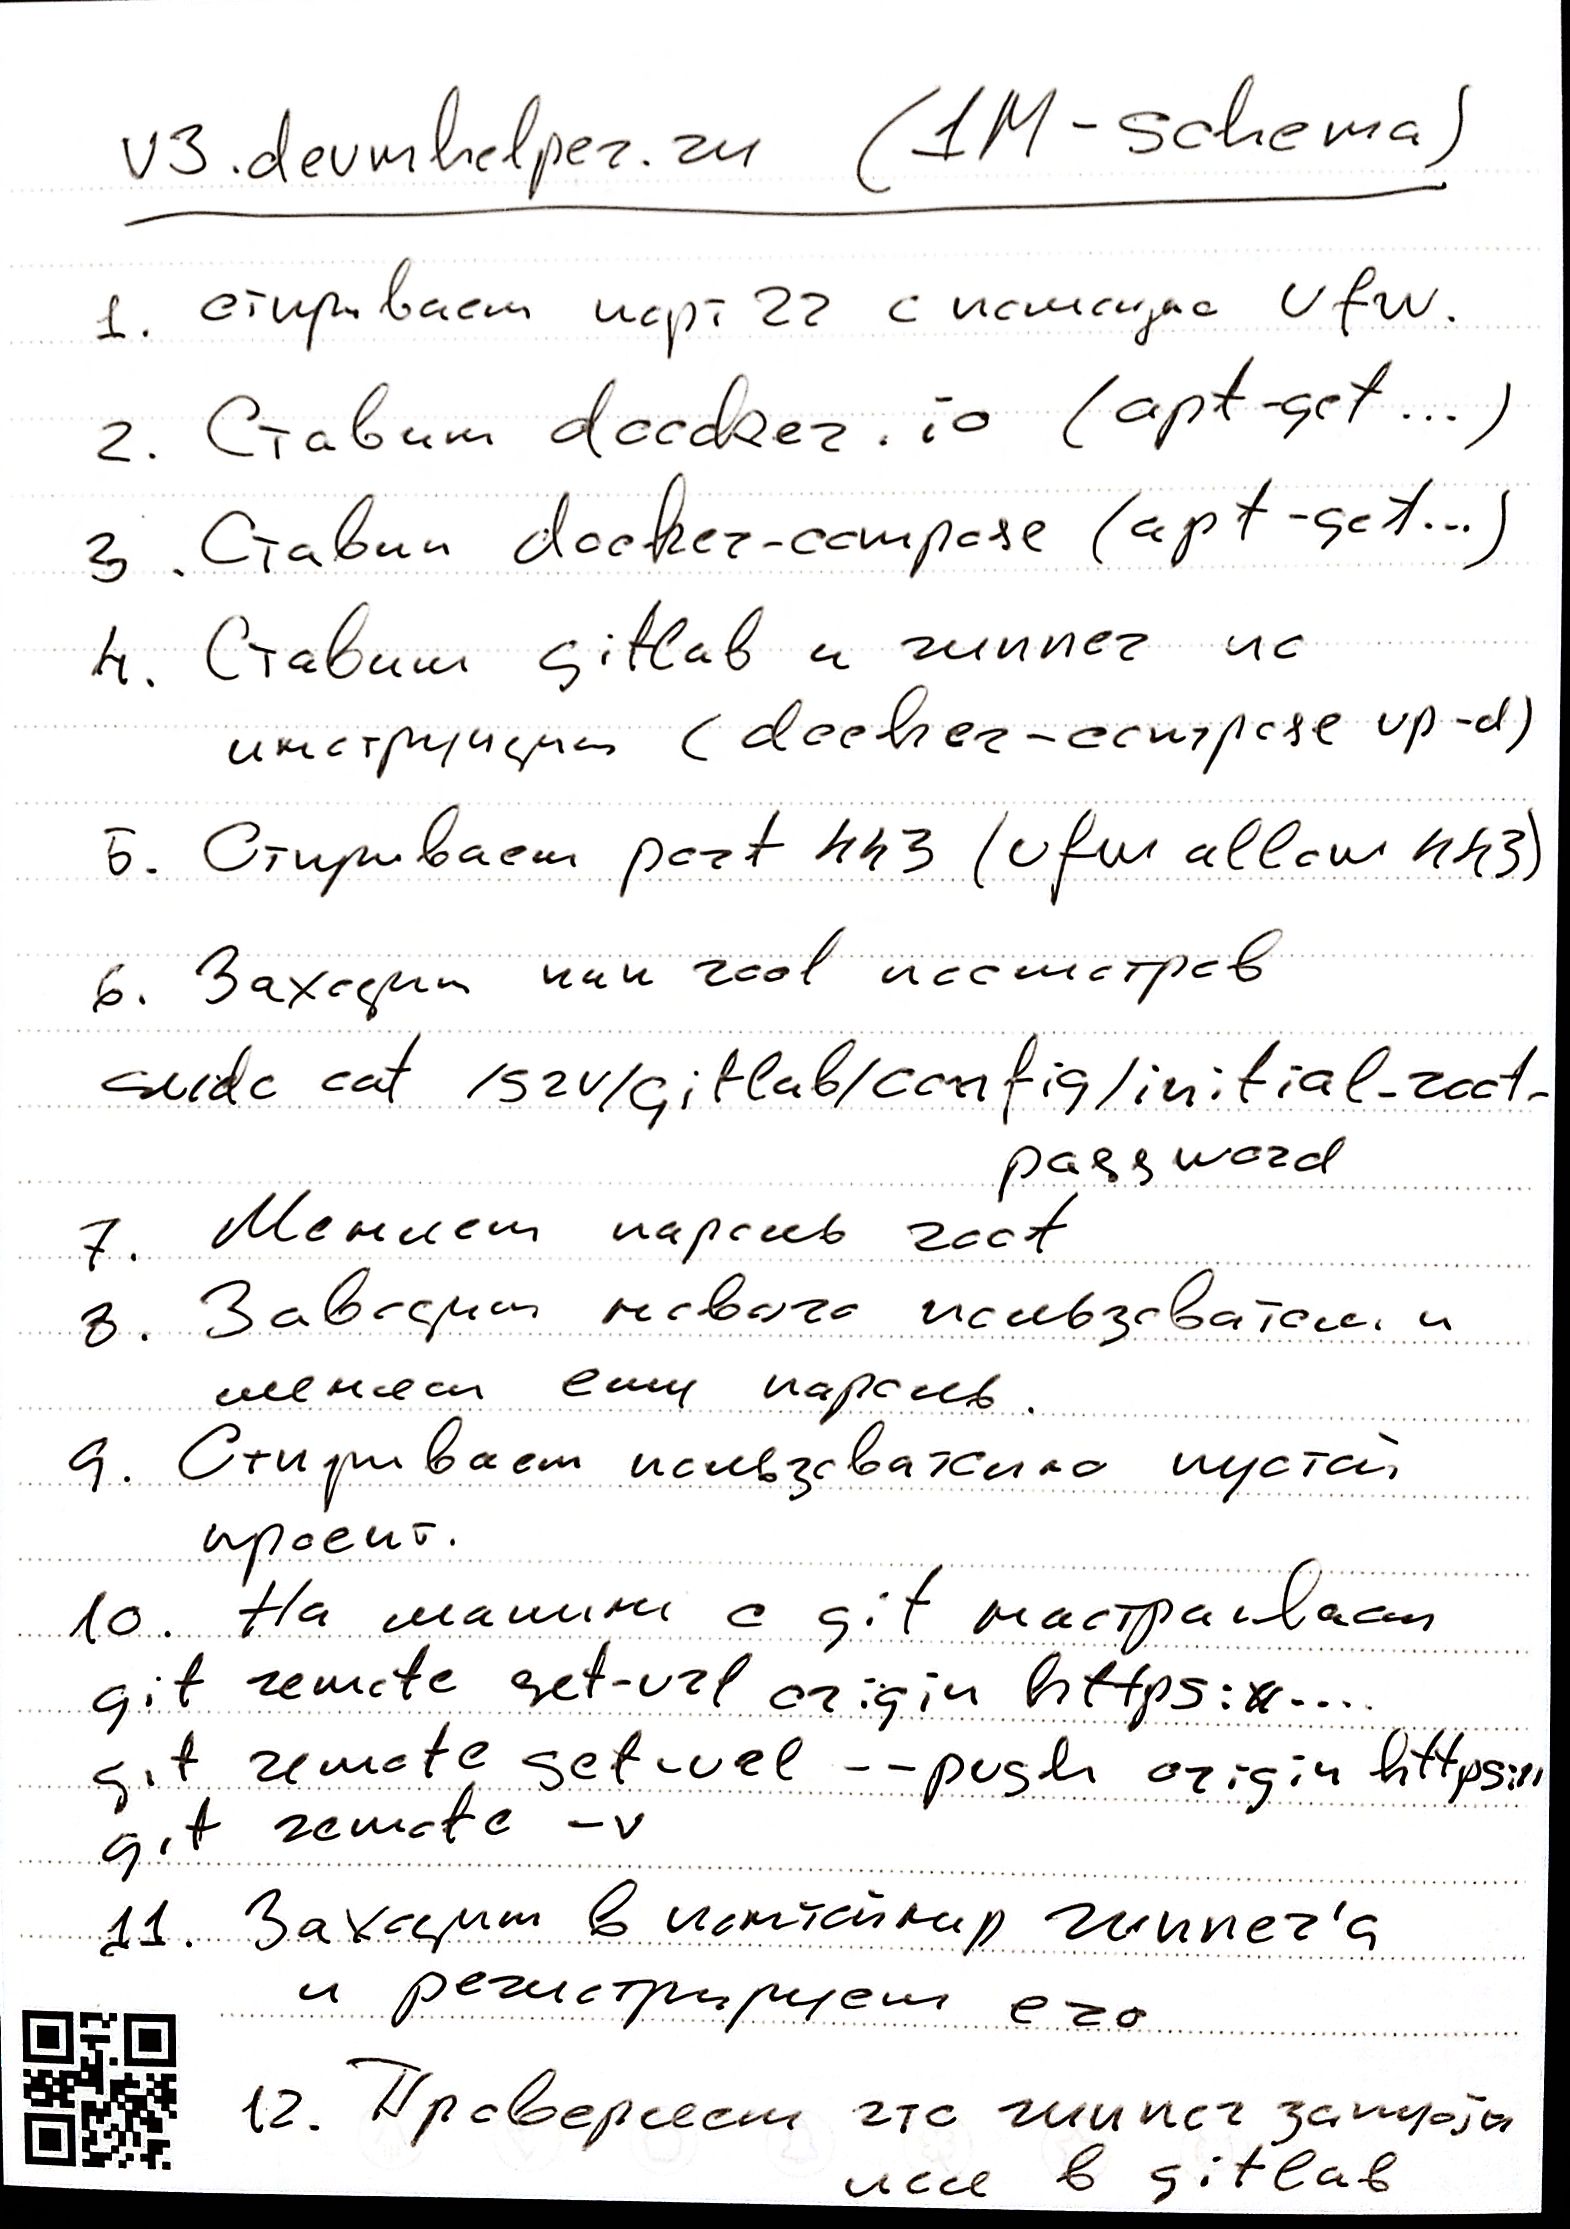 v3.devmhelper.ru (1M-schema)
1. открываем порт 22 с помощью ufw.
2. Ставим docker.io (apt-get...)
3. Ставим docker-compose (apt-get...)
4. Ставим gitlab и runner по
инструкции (docker-compose up -d)
5. Открываем port 443 (ufw allow 443)
6. Заходим как root посмотрев
sudo cat /srv/gitlab/config/initial_root_
password
7. Меняем пароль root
8. Заводим нового пользователя и
меняем ему пароль.
9. Открываем пользователю пустой
проект.
10. На машине с git настраиваем
git remote set-url origin https://....
git remote set-url --push origin https://
git remote -v
11. Заходим в контейнер runner'а
и регистрируем его
12. Проверяем что runner
в gitlab